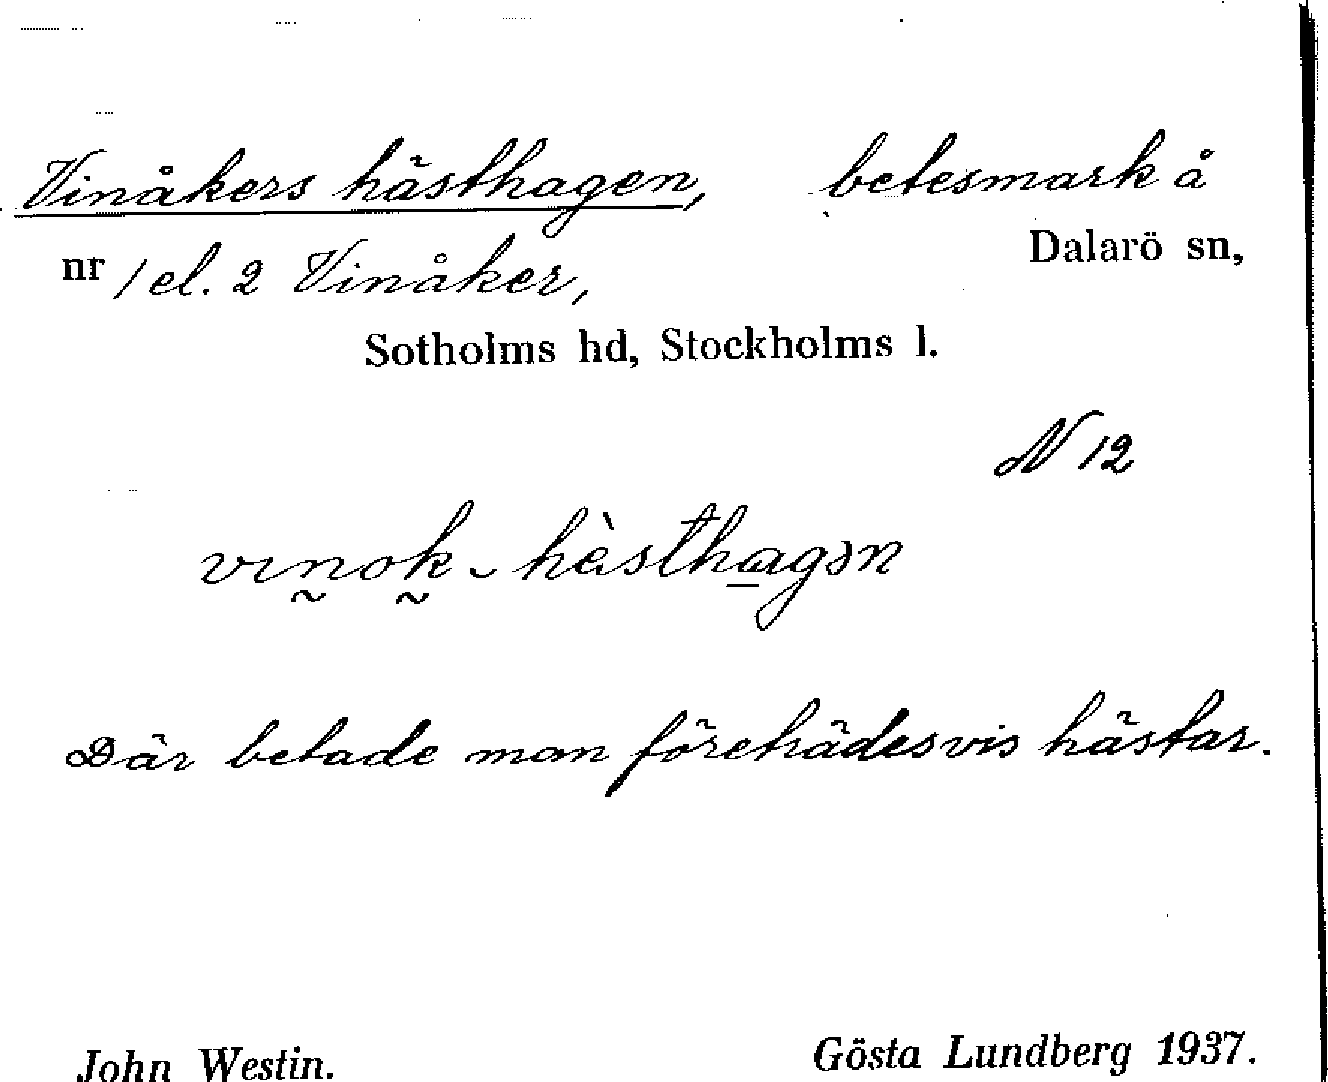 Vinåkers hästhagen, betesmark å
nr 1 el. 2 Vinåker, Dalarö sn,
Sotholms hd, Stockholms l.
N 12
vın̰ok̰ - hὲstha̲gən
Där betade man företrädesvis hästar.
John Westin. Gösta Lundberg 1937.